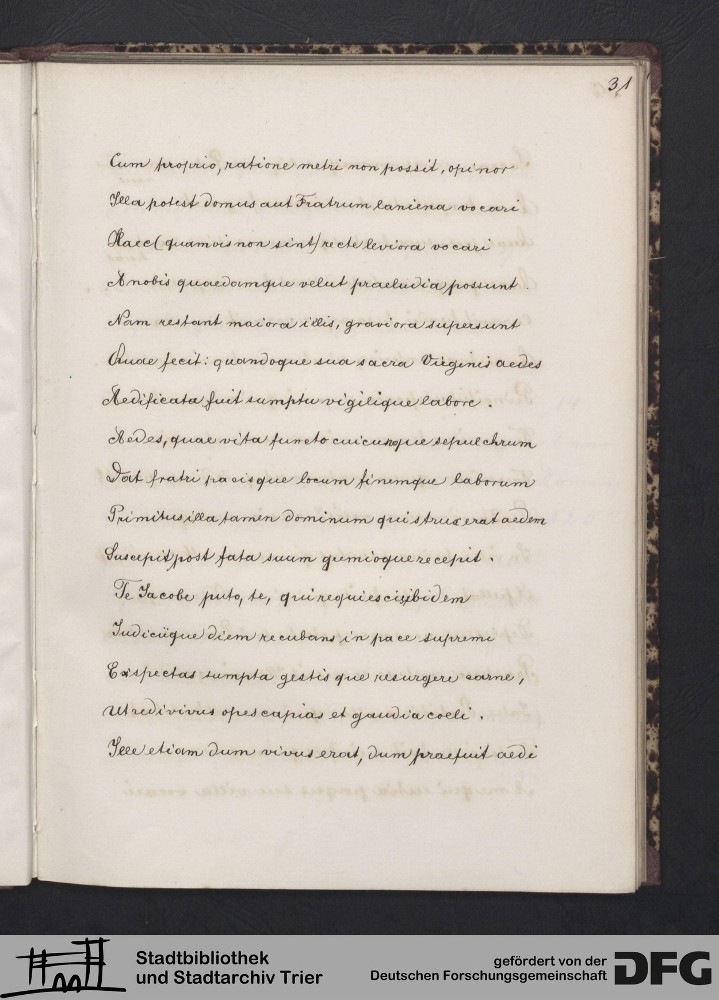 31
Cum proprio, ratione metri non possit, opinor
Illa potest domus aut Fratrum laniena vocari
Haec (quamvis non sint) recte leviora vocari
A nobis quaedamque velut praeludia possunt.
Nam restant maiora illis, graviora supersunt
Quae fecit: quandoque sua sacra Virginis aedes
Aedificata fuit sumptu vigilique labore.
Aedes, quae vita functo cuicunque sepulchrum
Dat fratri pacisque locum finemque laborum
Primitus illa tamen dominum qui struxerat aedem
Suscepit post fata suum gremioque recepit.
Te Jacobe puto, te, qui requiescis ibidem
Judiciique diem recubans in pace supremi
Exspectas sumpta gestisque resurgere carne,
Ut redivivus opes capias et gaudia coeli.
Ille etiam dum vivus erat, dum praefuit aedi
Stadtbibliothek
und Stadtarchiv Trier
gefördert von der
Deutschen Forschungsgemeinschaft
DFG